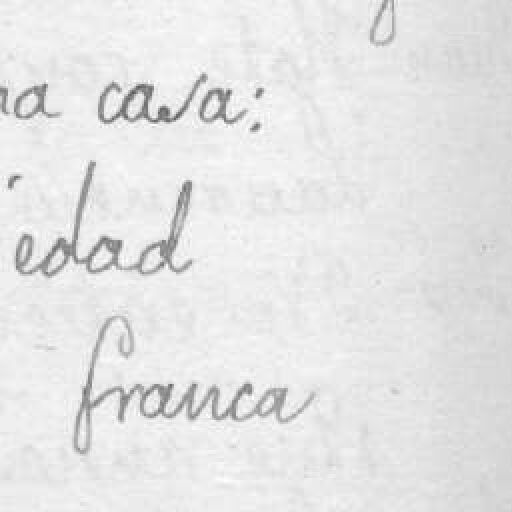 na casa:
iedad
franca